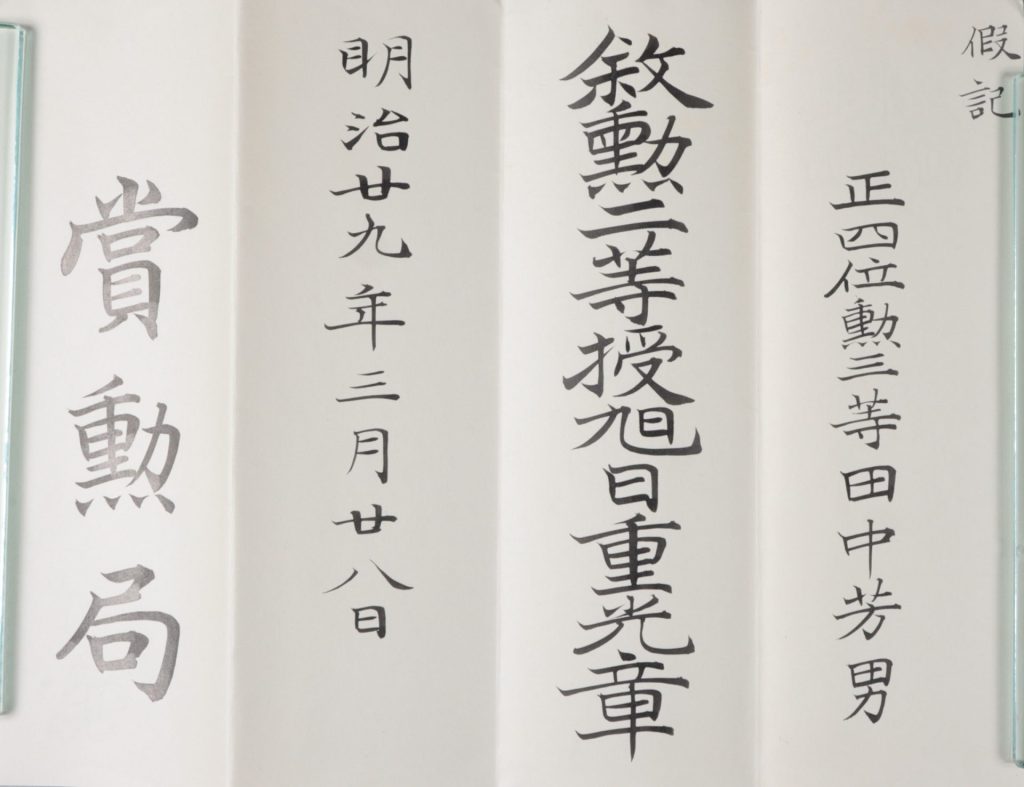 假記
正四位勳三等田中芳男
敘勳二等授旭日重光章
明治廿九年三月廿八日
賞勳局